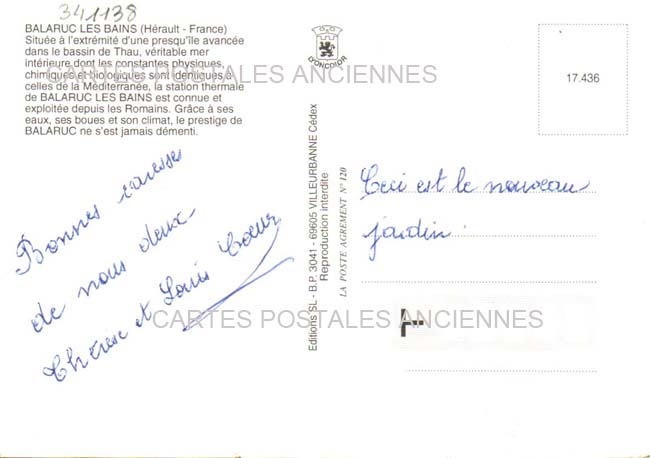 341138
BALARUC LES BAINS (Hérault - France)
Située à l'extrémité d'une presqu'île avancée
dans le bassin de Thau, véritable mer
intérieure dont les constantes physiques,
chimiques et biologiques sont identiques à
celles de la Méditerranée, la station thermale
de BALARUC LES BAINS est connue et
exploitée depuis les Romains. Grâce à ses
eaux, ses boues et son climat, le prestige de
BALARUC ne s'est jamais démenti.
CARTES POSTALES ANCIENNES
LYONCOLOR
17.436
Bonnes caresse
de nous deux
Thérèse et Louis Coeur
Editions SL - B.P. 3041 - 69605 VILLEURBANNE Cédex
Reproduction interdite
LA POSTE AGREMENT N° 120
Ceci est le nouveau
jardin.
CARTES POSTALES ANCIENNES